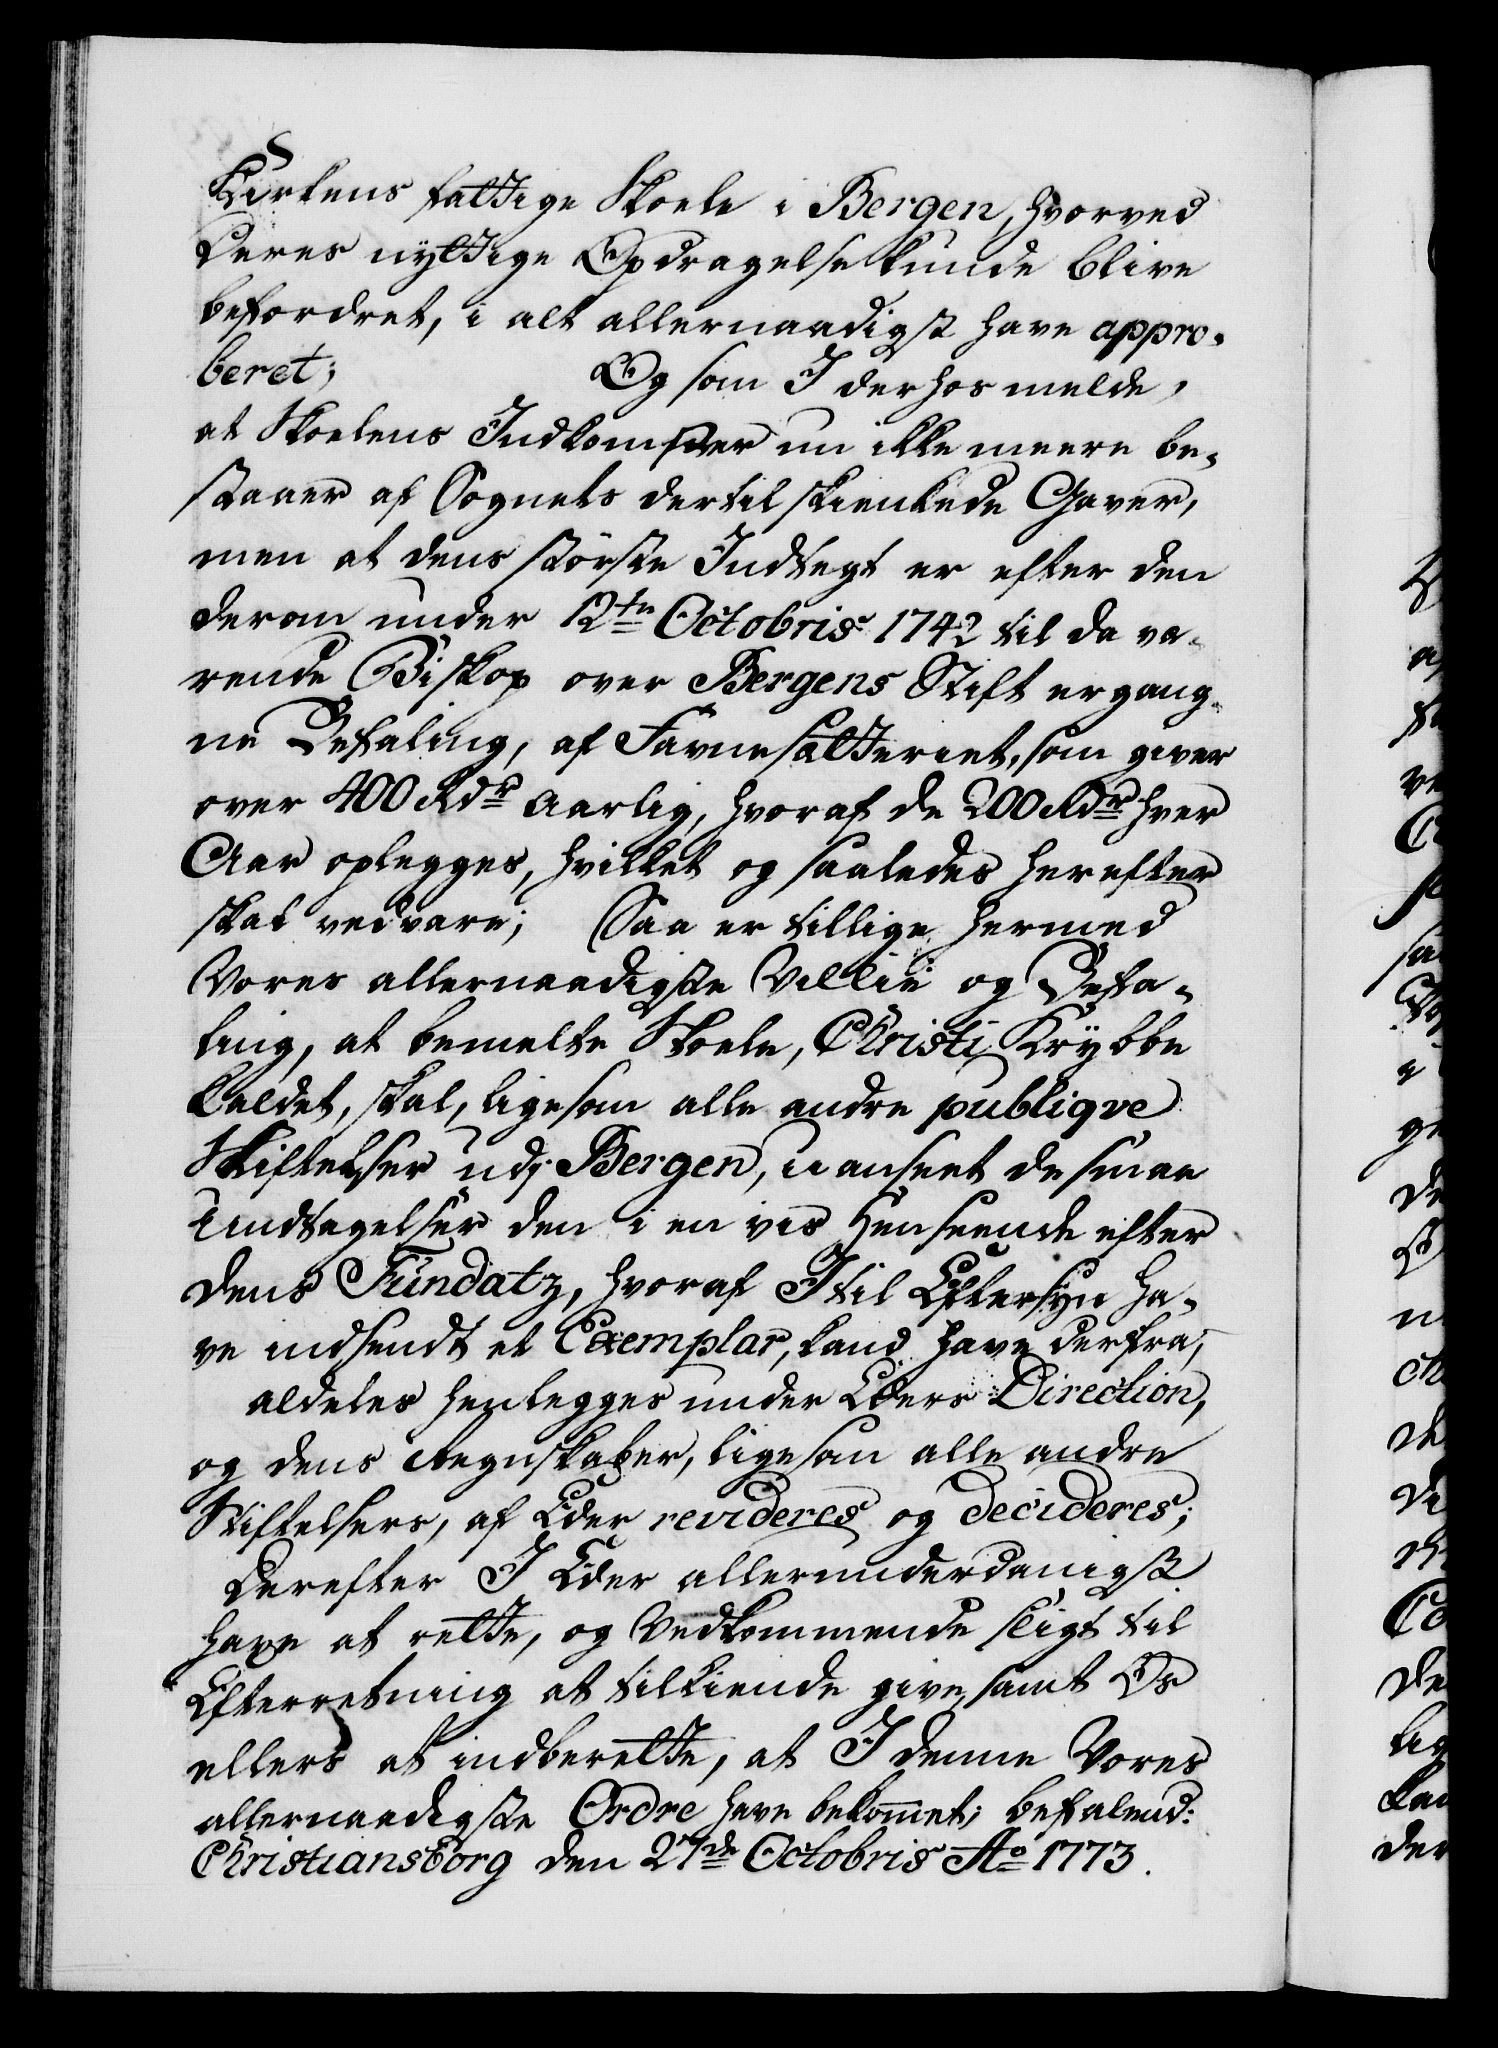 Kirkens fattige Skoele i Bergen, hvorved
deres nyttige Opdragelse kunde blive
befordret, i alt allernaadigst have appro-
beret; Og som I derhos melde,
at Skoelens Indkomster nu ikke meere be-
staaer af Sognets dertil skienkede Gaver,
men at dens störste Indtegt er efter den
derom under 12te Octobris 1742 til da væ-
rende Biskop over Bergens Stift ergang-
ne Befaling, af Favnesætteriet, som giver
over 400 Rdr aarlig, hvoraf de 200 Rdr hver
Aar oplegges, hvilket og saaledes herefter
skal vedvare; Saa er tillige hermed
Vores allernaadigste Villie og Befa-
ling, at bemelte Skoele, Christi Krybbe
kaldet, skal, ligesom alle andre publiqve
Stiftelser udj Bergen, uanseet de smaa
Undtagelser den i en vis Henseende efter
dens Fundatz, hvoraf I til Eftersyn ha-
ve indsendt et Exemplar, kand have derfra,
aldeles henlegges under Eders Direction,
og dens Regnskaber, ligesom alle andre
Stiftelsers, af Eder revideres og decideres;
Derefter I Eder allerunderdanigst
have at rette, og Vedkommende sligt til
Efterretning at tilkiende give, samt Os
ellers at indberette, at I denne Vores
allernaadigste Ordre have bekommet; befalend:
Christiansborg den 27de Octobris Ao 1773.